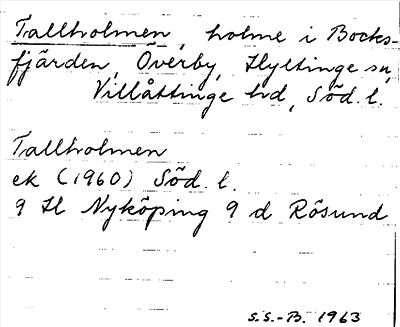 Tallholmen, holme i Bocks-
fjärden, Överby, Hyltinge sn,
Villåttinge hd, Söd. l.
Tallholmen
ek (1960) Söd. l.
9 H Nyköping 9 d Rösund
S.S.-B. 1963